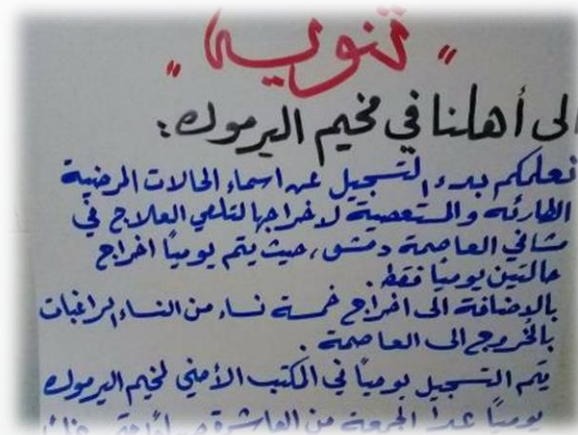 " تنويه "
إلى أهلنا في مخيم اليرموك:
نعلمكم بدء التسجيل عن اسماء الحالات المرضية
الطارئة والمستعصية لاخراجها لتلقي العلاج في
مشافي العاصمة دمشق، حيث يتم يومياً اخراج
حالتين يومياً فقط.
بالإضافة الى اخراج خمسة نساء من النساء الراغبات
بالخروج الى العاصمة.
يتم التسجيل يومياً في المكتب الأمني لمخيم اليرموك
يومياً عدا الجمعة من العاشرة صباحاً